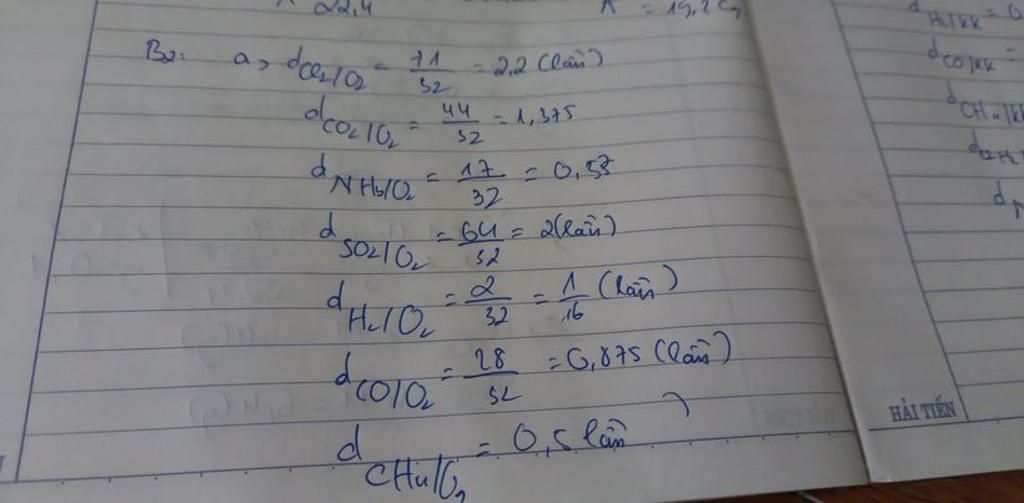 22,4 = 19,2 g
B2: a, dCl2/O2 = 71/32 = 2,2 (lần)
dCO2/O2 = 44/32 = 1,375
dNH3/O2 = 17/32 = 0,53
dSO2/O2 = 64/32 = 2 (lần)
dH2/O2 = 2/32 = 1/16 (lần)
dCO/O2 = 28/32 = 0,875 (lần)
dCH4/O2 = 0,5 lần
dH2/KK = 0,
dCO/KK =
dCH4/KK
d
HẢI TIẾN